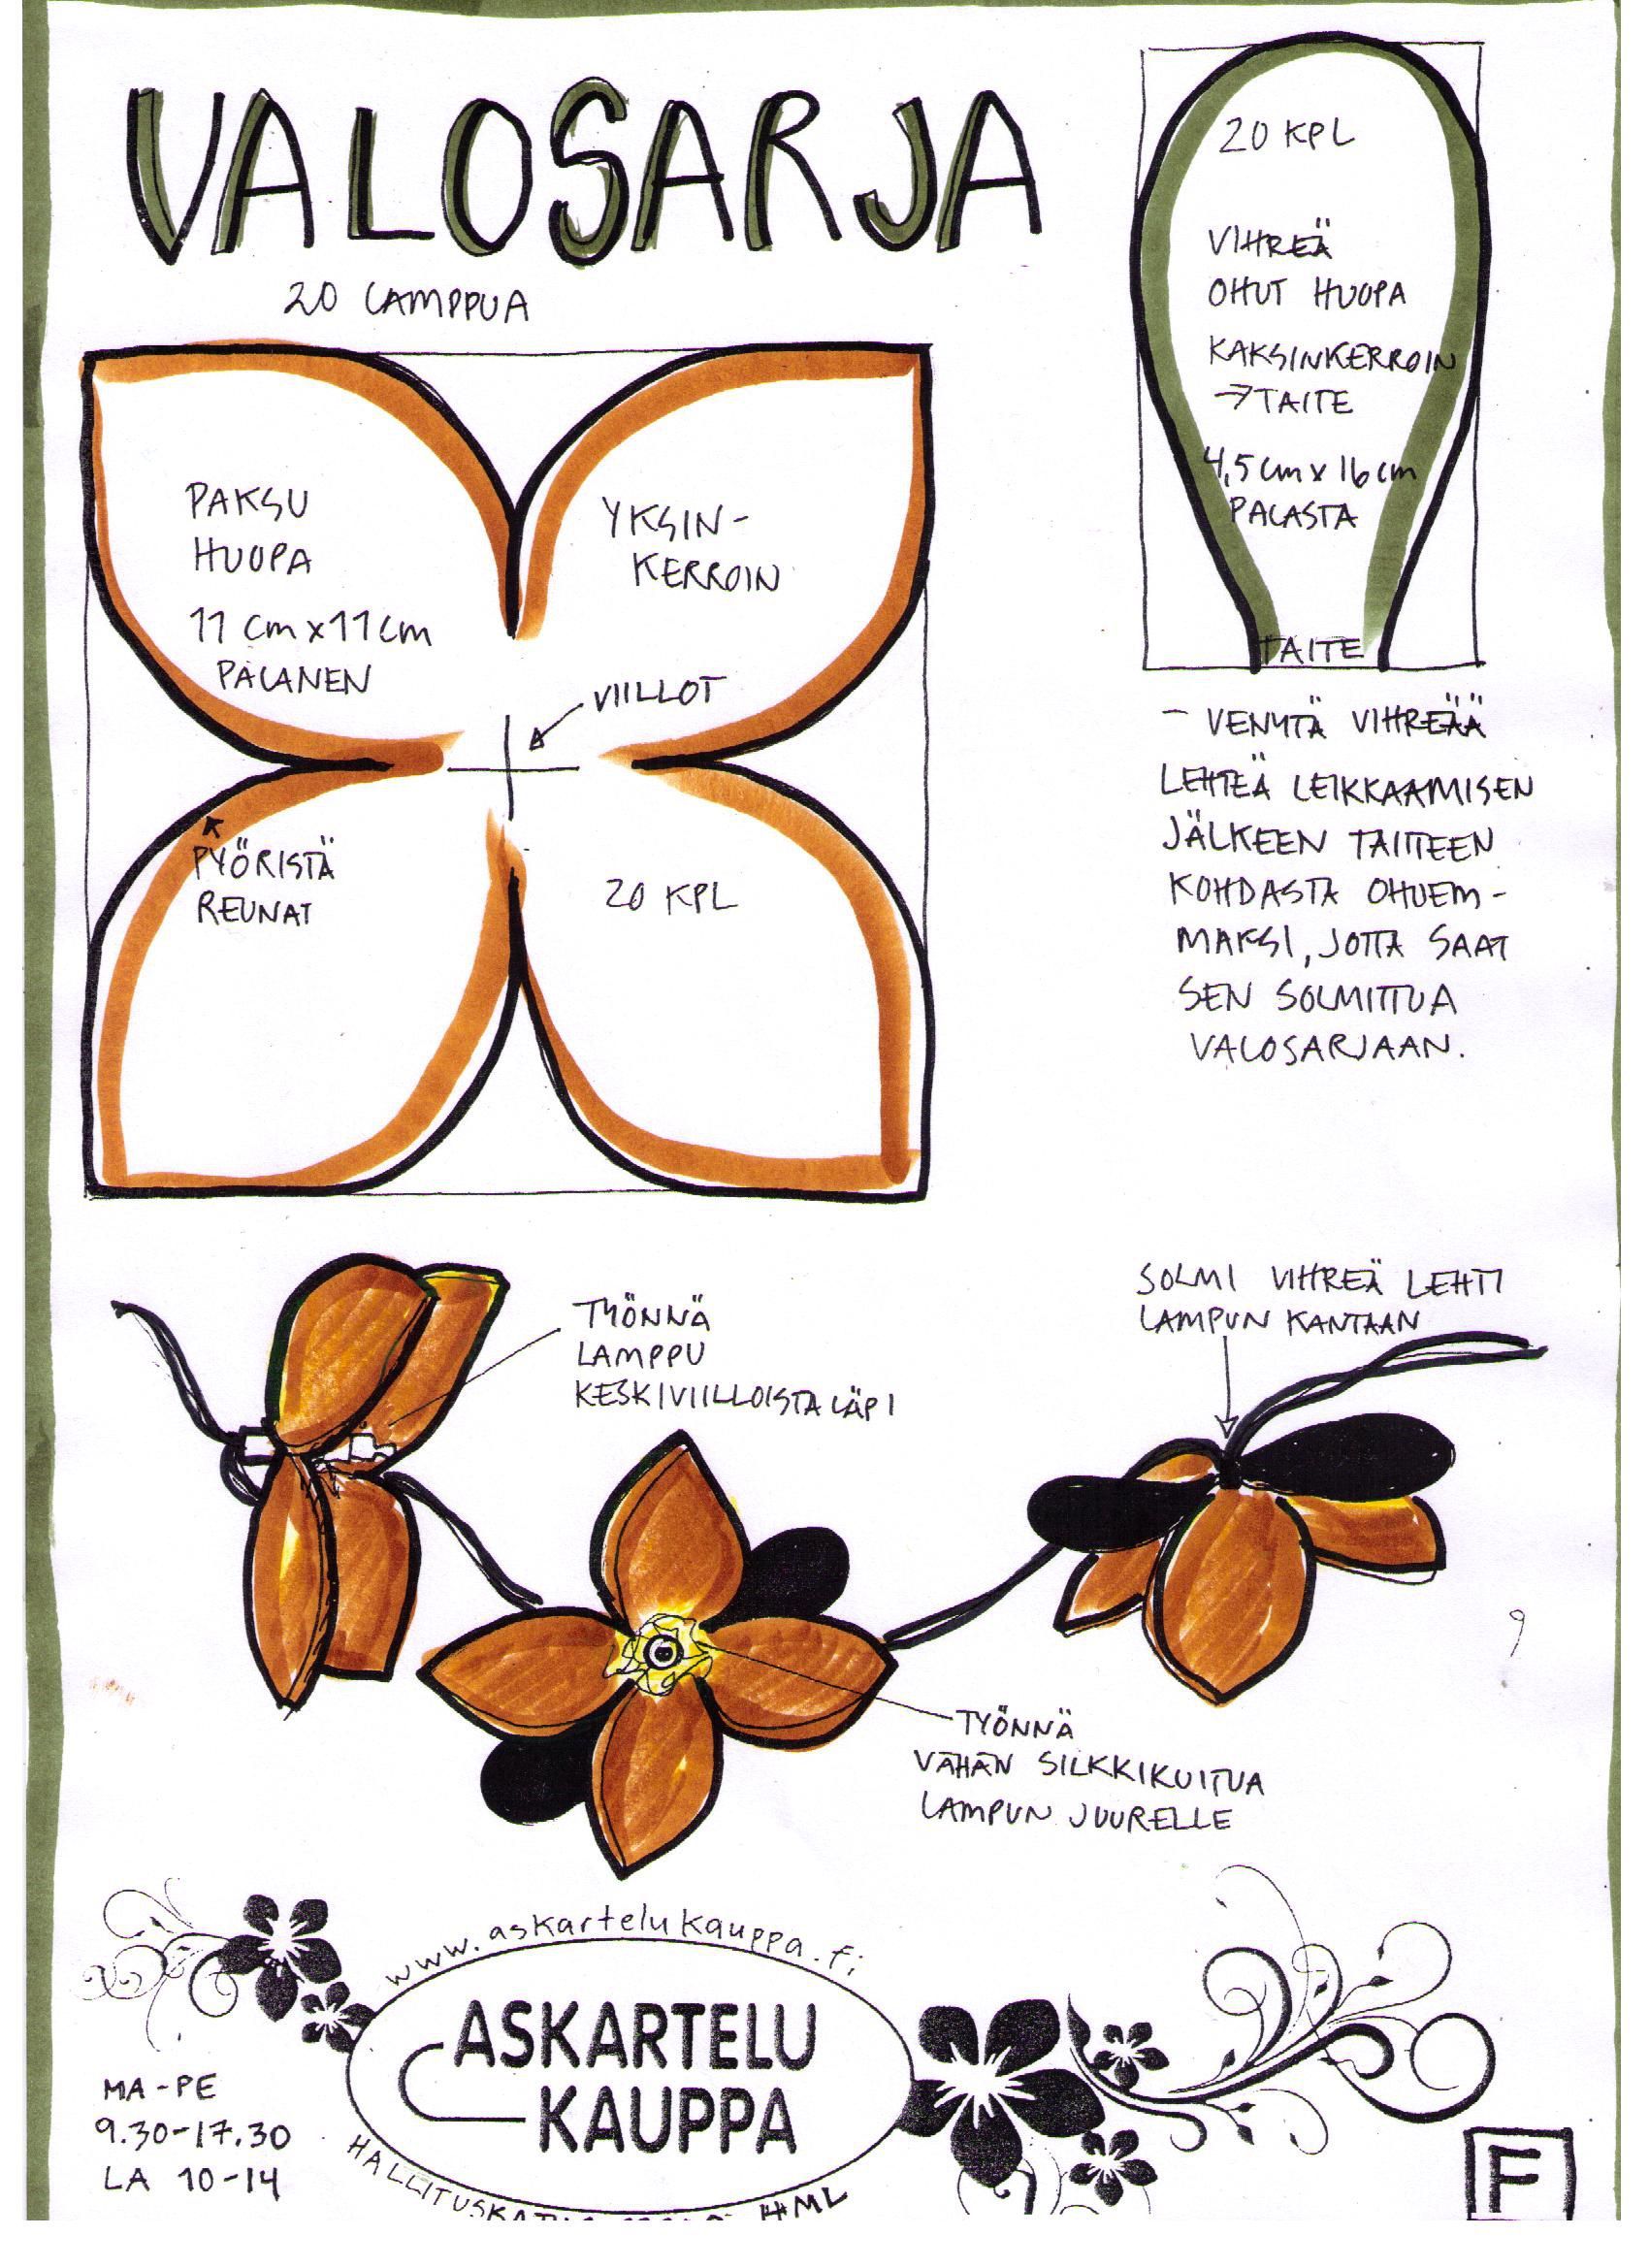 VALOSARJA
20 LAMPPUA
PAKSU
HUOPA
11 cm x 11 cm
PALANEN
YKSIN-
KERROIN
VIILLOT
PYÖRISTÄ
REUNAT
20 KPL
20 KPL
VIHREÄ
OHUT HUOPA
KAKSINKERROIN
→ TAITE
4,5 cm x 16 cm
PALASTA
TAITE
- VENYTÄ VIHREÄÄ
LEHTEÄ LEIKKAAMISEN
JÄLKEEN TAITTEEN
KOHDASTA OHUEM-
MAKSI, JOTTA SAAT
SEN SOLMITTUA
VALOSARJAAN.
TYÖNNÄ
LAMPPU
KESKIVIILLOISTA LÄPI
SOLMI VIHREÄ LEHTI
LAMPUN KANTAAN
TYÖNNÄ
VÄHÄN SILKKIKUITUA
LAMPUN JUURELLE
www.askartelukauppa.fi
ASKARTELU
KAUPPA
HML
MA-PE
9.30-17.30
LA 10-14
F